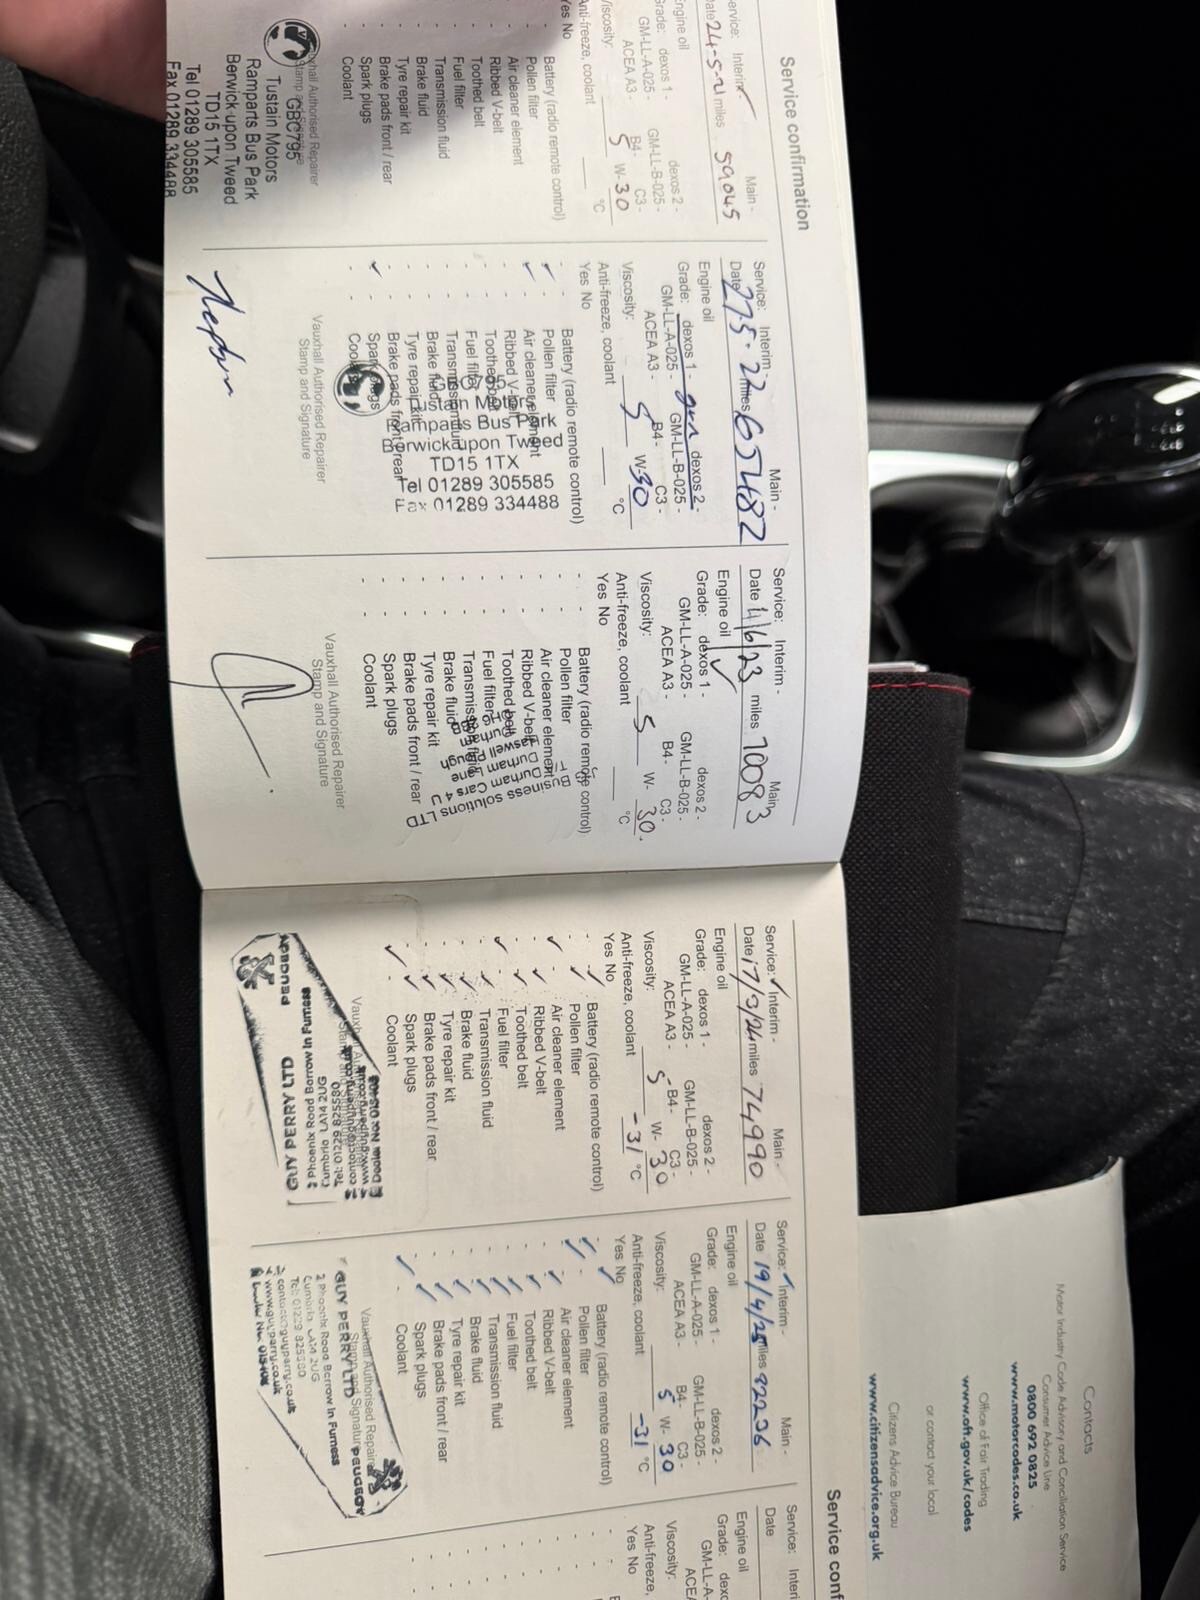 Service confirmation
Service: Interim - ✓ Main -
Date 24-5-21 miles 59045
Engine oil
Grade: dexos 1 - dexos 2 -
GM-LL-A-025 - GM-LL-B-025 -
ACEA A3 - B4 - C3 -
Viscosity: 5 W- 30
Anti-freeze, coolant °C
Yes No
Battery (radio remote control)
Pollen filter
Air cleaner element
Ribbed V-belt
Toothed belt
Fuel filter
Transmission fluid
Brake fluid
Tyre repair kit
Brake pads front / rear
Spark plugs
Coolant
Vauxhall Authorised Repairer
Stamp and Signature
GBC795
Tustain Motors
Ramparts Bus Park
Berwick-upon Tweed
TD15 1TX
Tel 01289 305585
Fax 01289 334488
Service: Interim - Main -
Date 27.5.22 miles 65482
Engine oil
Grade: dexos 1 - dexos 2 -
GM-LL-A-025 - GM-LL-B-025 -
ACEA A3 - B4 - C3 -
Viscosity: 5 W- 30
Anti-freeze, coolant °C
Yes No
Battery (radio remote control)
✓ Pollen filter
✓ Air cleaner element
Ribbed V-belt
Toothed belt
Fuel filter
Transmission fluid
Brake fluid
Tyre repair kit
Brake pads front / rear
✓ Spark plugs
Coolant
Tustain Motors
Ramparts Bus Park
Berwick upon Tweed
TD15 1TX
Tel 01289 305585
Fax 01289 334488
Vauxhall Authorised Repairer
Stamp and Signature
Service: Interim - Main -
Date 4/6/23 miles 70083
Engine oil ✓
Grade: dexos 1 - dexos 2 -
GM-LL-A-025 - GM-LL-B-025 -
ACEA A3 - B4 - C3 -
Viscosity: 5 W- 30
Anti-freeze, coolant °C
Yes No
Battery (radio remote control)
Pollen filter
Air cleaner element
Ribbed V-belt
Toothed belt
Fuel filter
Transmission fluid
Brake fluid
Tyre repair kit
Brake pads front / rear
Spark plugs
Coolant
Vauxhall Authorised Repairer
Stamp and Signature
Service: ✓ Interim - Main -
Date 17/3/24 miles 74990
Engine oil
Grade: dexos 1 - dexos 2 -
GM-LL-A-025 - GM-LL-B-025 -
ACEA A3 - B4 - C3 -
Viscosity: 5 W- 30
Anti-freeze, coolant -31 °C
Yes No
✓ Battery (radio remote control)
✓ Pollen filter
✓ Air cleaner element
✓ Ribbed V-belt
✓ Toothed belt
✓ Fuel filter
✓ Transmission fluid
✓ Brake fluid
✓ Tyre repair kit
✓ Brake pads front / rear
✓ Spark plugs
✓ Coolant
PEUGEOT
GUY PERRY LTD
2 Phoenix Road Barrow in Furness
Cumbria LA14 2UG
Tel: 01229 825580
Service: ✓ Interim - Main -
Date 19/4/25 miles 82236
Engine oil
Grade: dexos 1 - dexos 2 -
GM-LL-A-025 - GM-LL-B-025 -
ACEA A3 - B4 - C3 -
Viscosity: 5 W- 30
Anti-freeze, coolant -31 °C
Yes No
✓ Battery (radio remote control)
✓ Pollen filter
✓ Air cleaner element
✓ Ribbed V-belt
✓ Toothed belt
✓ Fuel filter
✓ Transmission fluid
✓ Brake fluid
✓ Tyre repair kit
✓ Brake pads front / rear
✓ Spark plugs
✓ Coolant
Vauxhall Authorised Repairer
Stamp and Signature
PEUGEOT
GUY PERRY LTD
2 Phoenix Road Barrow In Furness
Cumbria LA14 2UG
Tel: 01229 825580
contact@guyperry.co.uk
www.guyperry.co.uk
Service conf
Service: Interi
Date
Engine oil
Grade: dexo
GM-LL-A-
ACEA
Viscosity:
Anti-freeze,
Yes No
Contacts
Motor Industry Code Advisory and Conciliation Service
Consumer Advice Line
0800 692 0825
www.motorcodes.co.uk
Office of Fair Trading
www.oft.gov.uk/codes
or contact your local
Citizens Advice Bureau
www.citizensadvice.org.uk